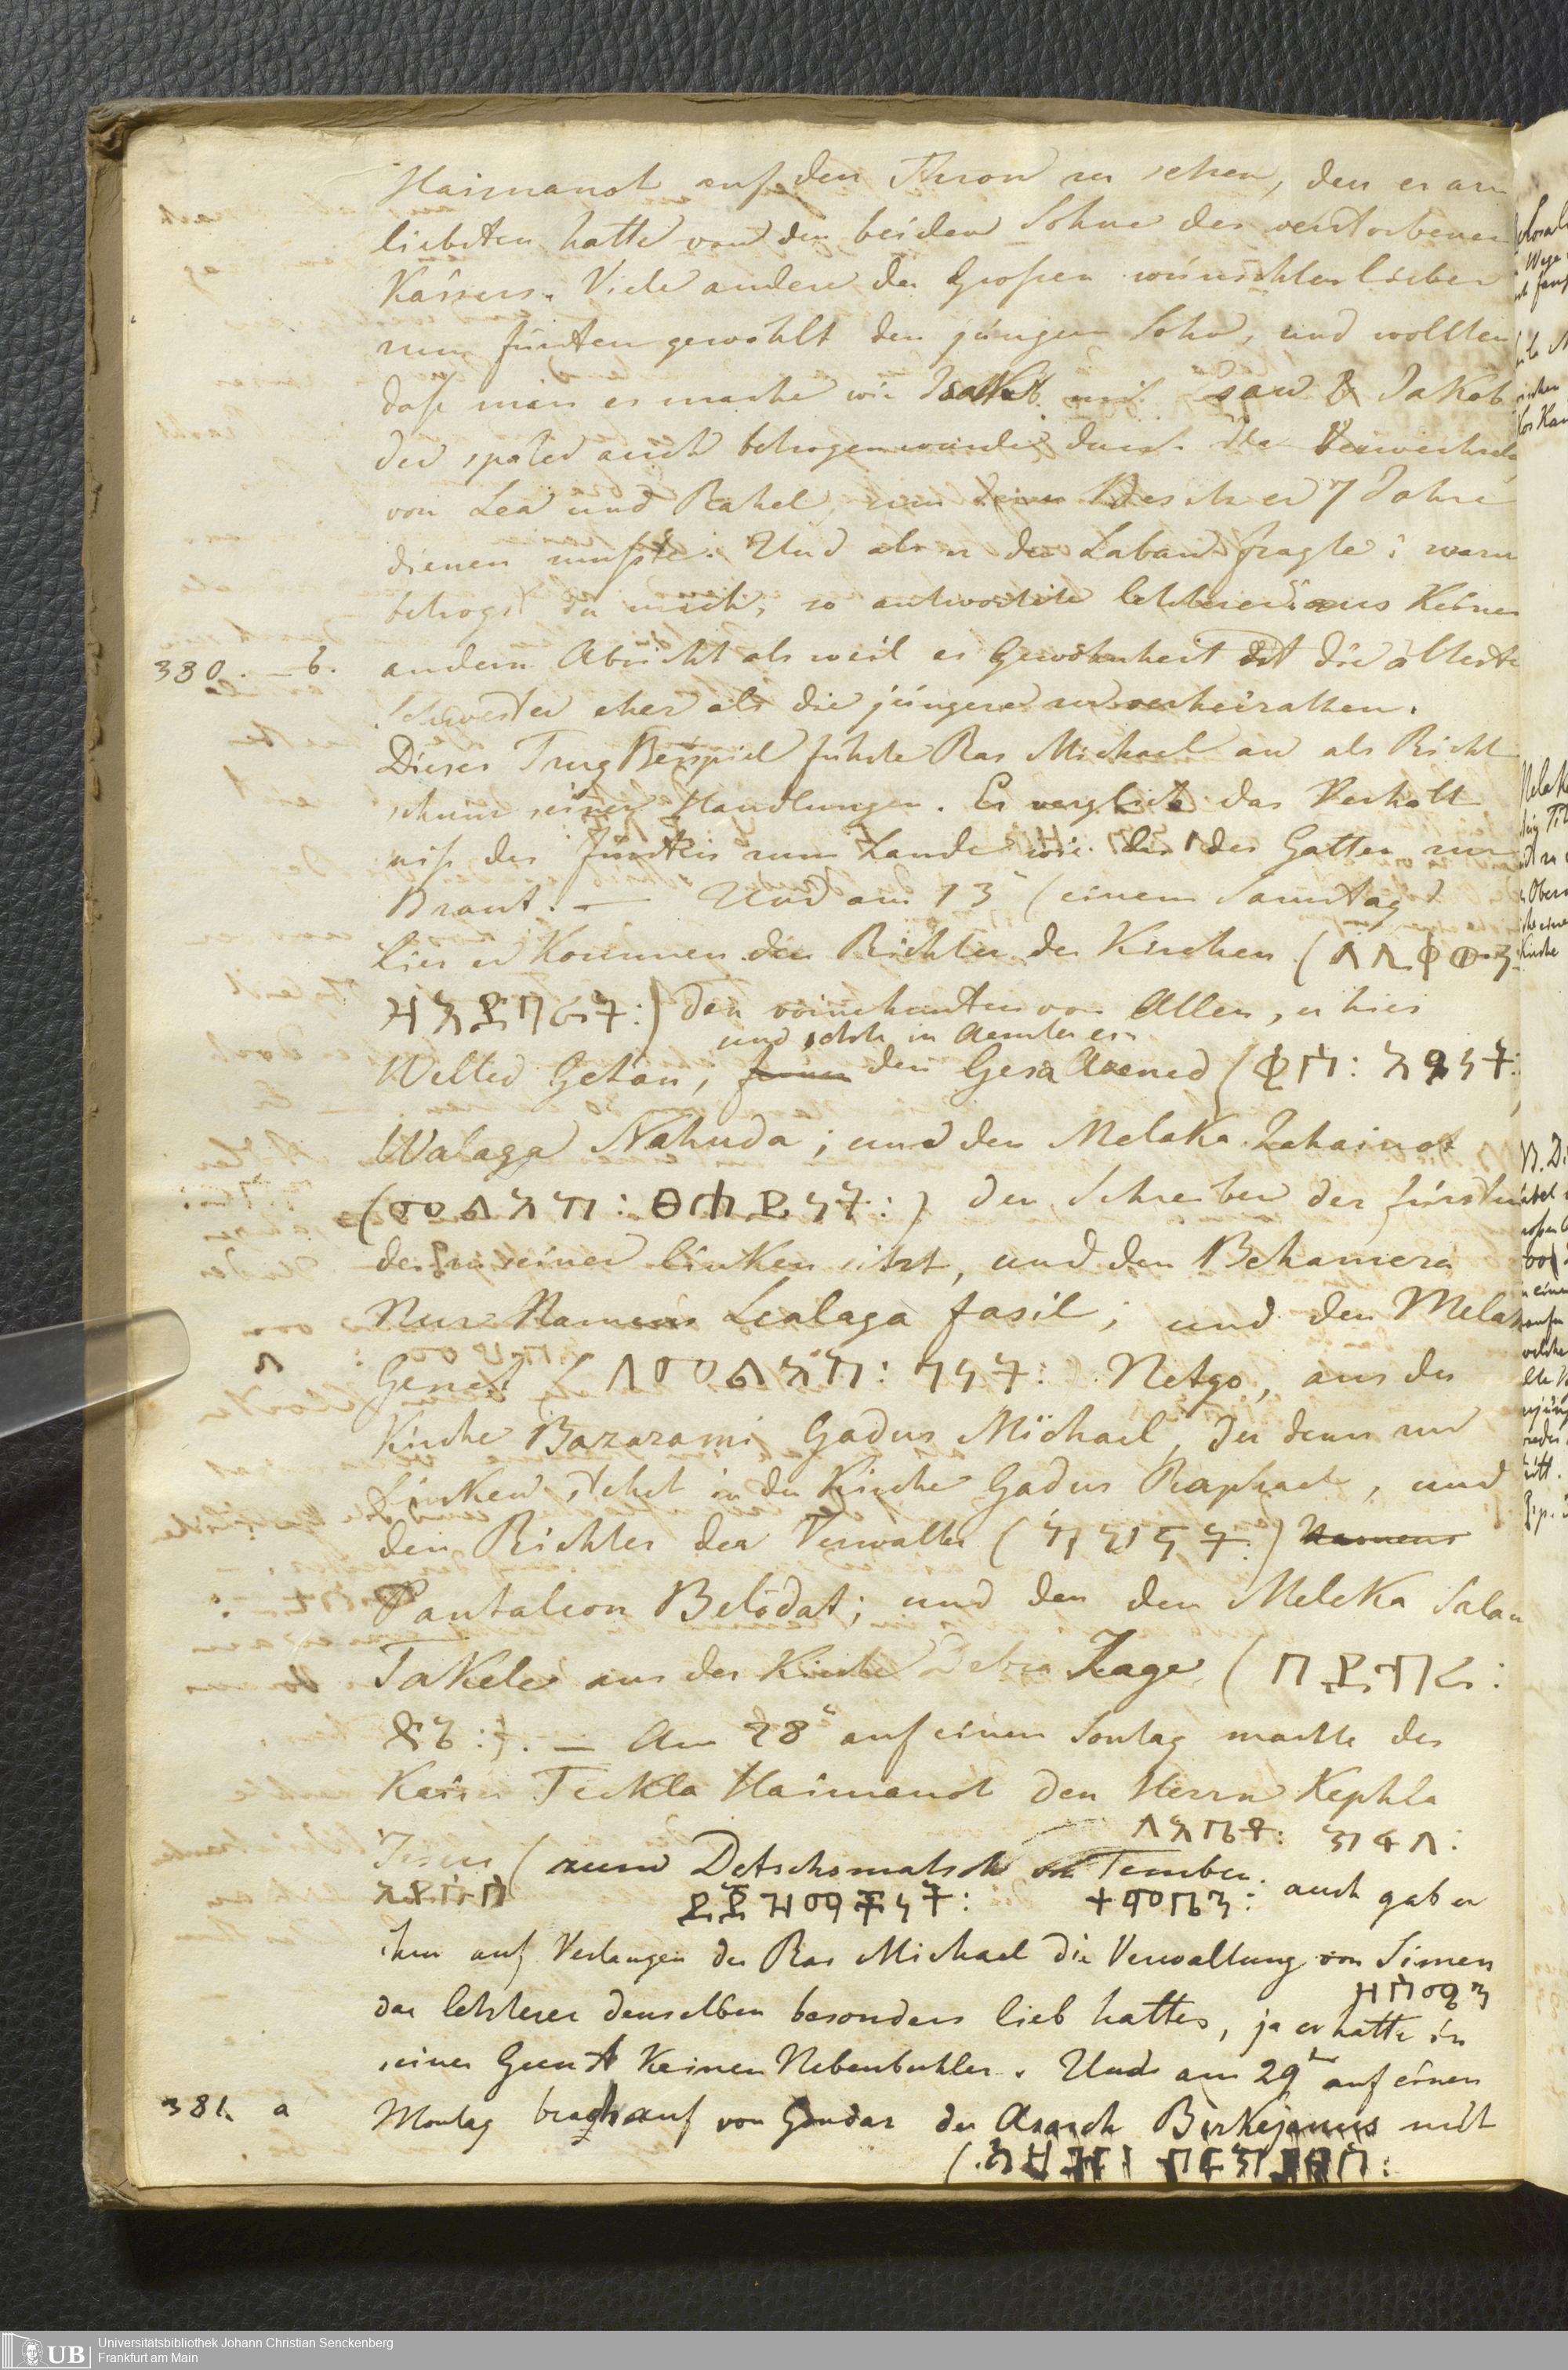 Haimanot auf den Thron zu sehen, den er am
liebsten hatte von den beiden Söhne des verstorbenen
Kaisers. Viele andere der Großen wünschten lieber
zum fürsten gewählt den jüngern Sohn, und wollten
daß man es mache wie mit Esau & Jakob
der später auch betrogen wurde durch die Verwechsle
von Lea und Rahel, um deren Besitz er 7 Jahre
dienen mußte. Und als er den Laban fragte: warum
betrogst du mich, so antwortete letzterer: aus keiner
380. – b. andern Absicht als weil es Gewohnheit ist die älteste
Schwester eher als die jüngere zu verheirathen.
Dieses Trug Beispiel führte Ras Michael an als Richt
schnur seiner Handlungen. Er verglich das Verhält
niß des fürsten zum Lande wie der des Gatten zur
Braut. — Und am 13ⁿ (einem Samstag
lies er kommen den Richter der Kirchen (
den vornehmsten von Allen, er hies
und setzte in Aemter ein
Welled Getan, den Gesa Azened (ቄሰ:
Walaga Nahuda; und den Melaka Zahainot
(መልአከ: ፀሐይ den Schreiber der fürsten
der zu seiner linken sitzt, und den Behamera
Nur Namens Lealaga fasil; und den Melak
ለ Genet (ለመልአከ: ገነት:) Netgo, aus der
Kirche Bazazami Gadus Michael, der denn zur
Linken steht in der Kirche Gadus Raphael, und
den Richter der Verwalter ( Namens
Pantaleon Belödat; und den den Meleka Salam
Takele aus der Kirche Debra Zage (በደብረ:
ፀጌ:). — Am 28ⁿ auf einen Sontag machte der
Kaiser Teckla Haimanot den Herrn Kephla
ክፍለ:
Jesus (zum Detschsmatsch von Temben. auch gab er
ኢየሱስ ተምቤን:
ihm auf Verlangen des Ras Michael die Verwaltung von Simen
ዘሰሜን
da letzterer denselben besonders lieb hatte, ja er hatte in
seiner Gunst keinen Nebenbuhler. Und am 29ᵗ auf einen
381. a Montag brach auf von Gondar der Asasch Birkejanus mit